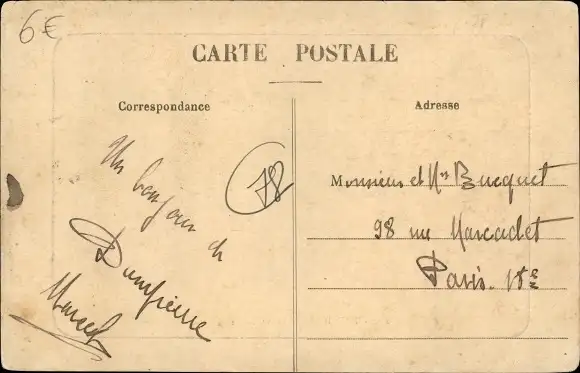 6€
CARTE POSTALE
Correspondance
Adresse
Un bonjour de
Dampierre
Marcel
78
Monsieur et Mme Bucquet
98 rue Marcadet
Paris. 18e